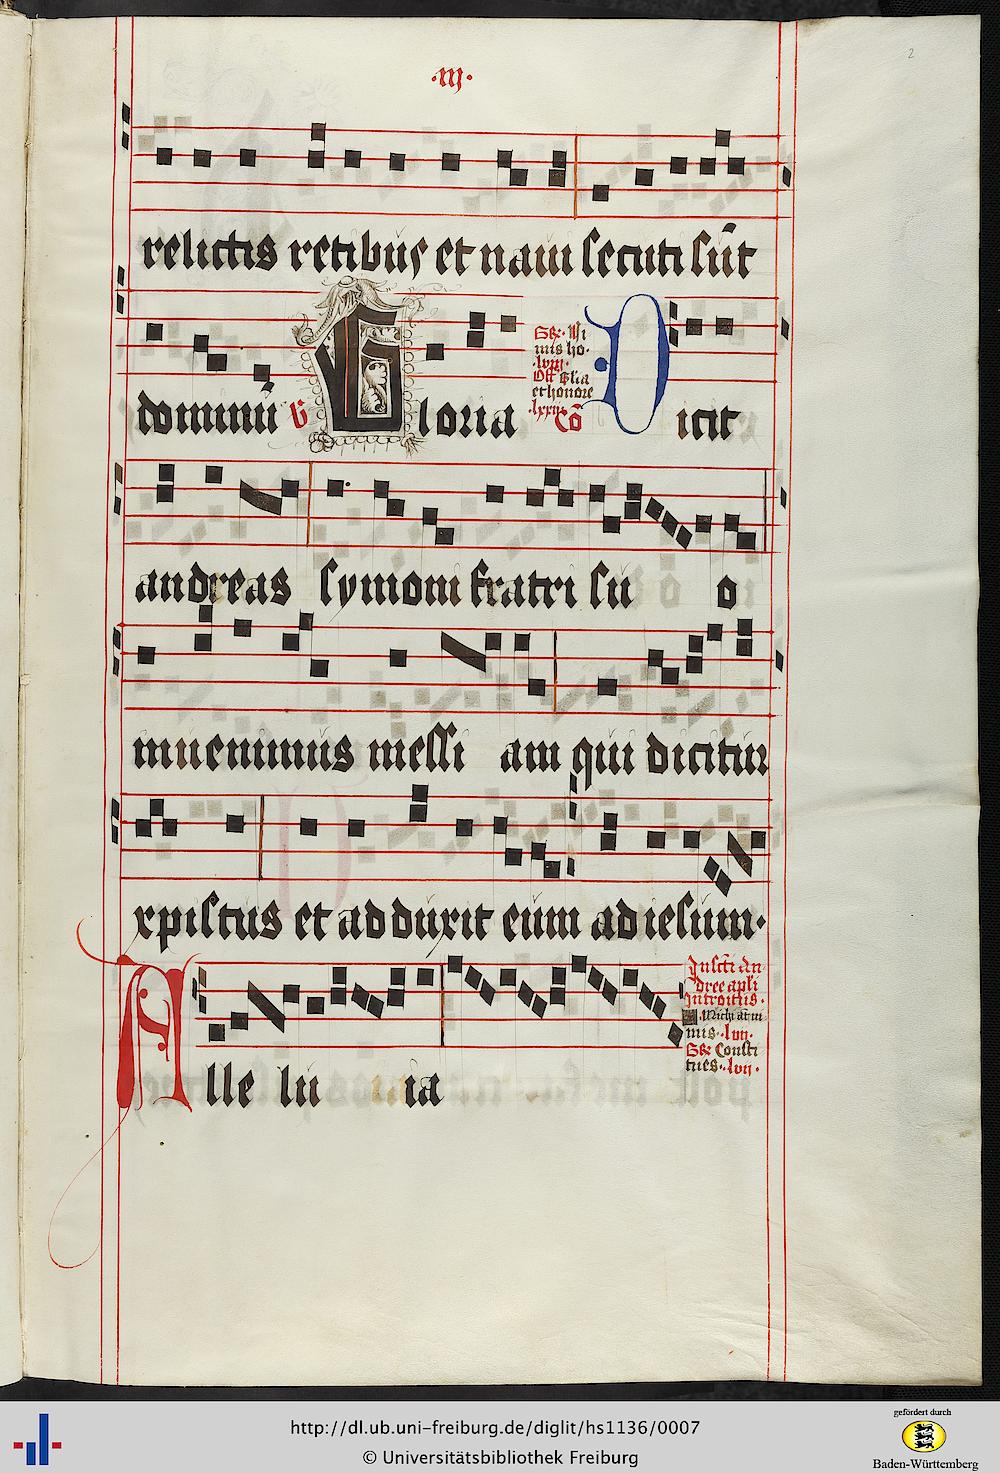 ·iij·
2
relictis retibus et naui secuti sūt
dominū
G
Gloria
Gr· Ni
mis ho·
·lxiii·
Off Glīa
et honore
·lxxii·
Cō
Dicit
andreas symoni fratri su o
inuenimus messi am qui dicitur
xpistus et adduxit eum ad iesum·
Alle lu ia
In scti An
dree apli
Introitus·
Michi at ni
mis··lvii·
Gr Consti
tues··lvij·
http://dl.ub.uni-freiburg.de/diglit/hs1136/0007
© Universitätsbibliothek Freiburg
gefördert durch
Baden-Württemberg